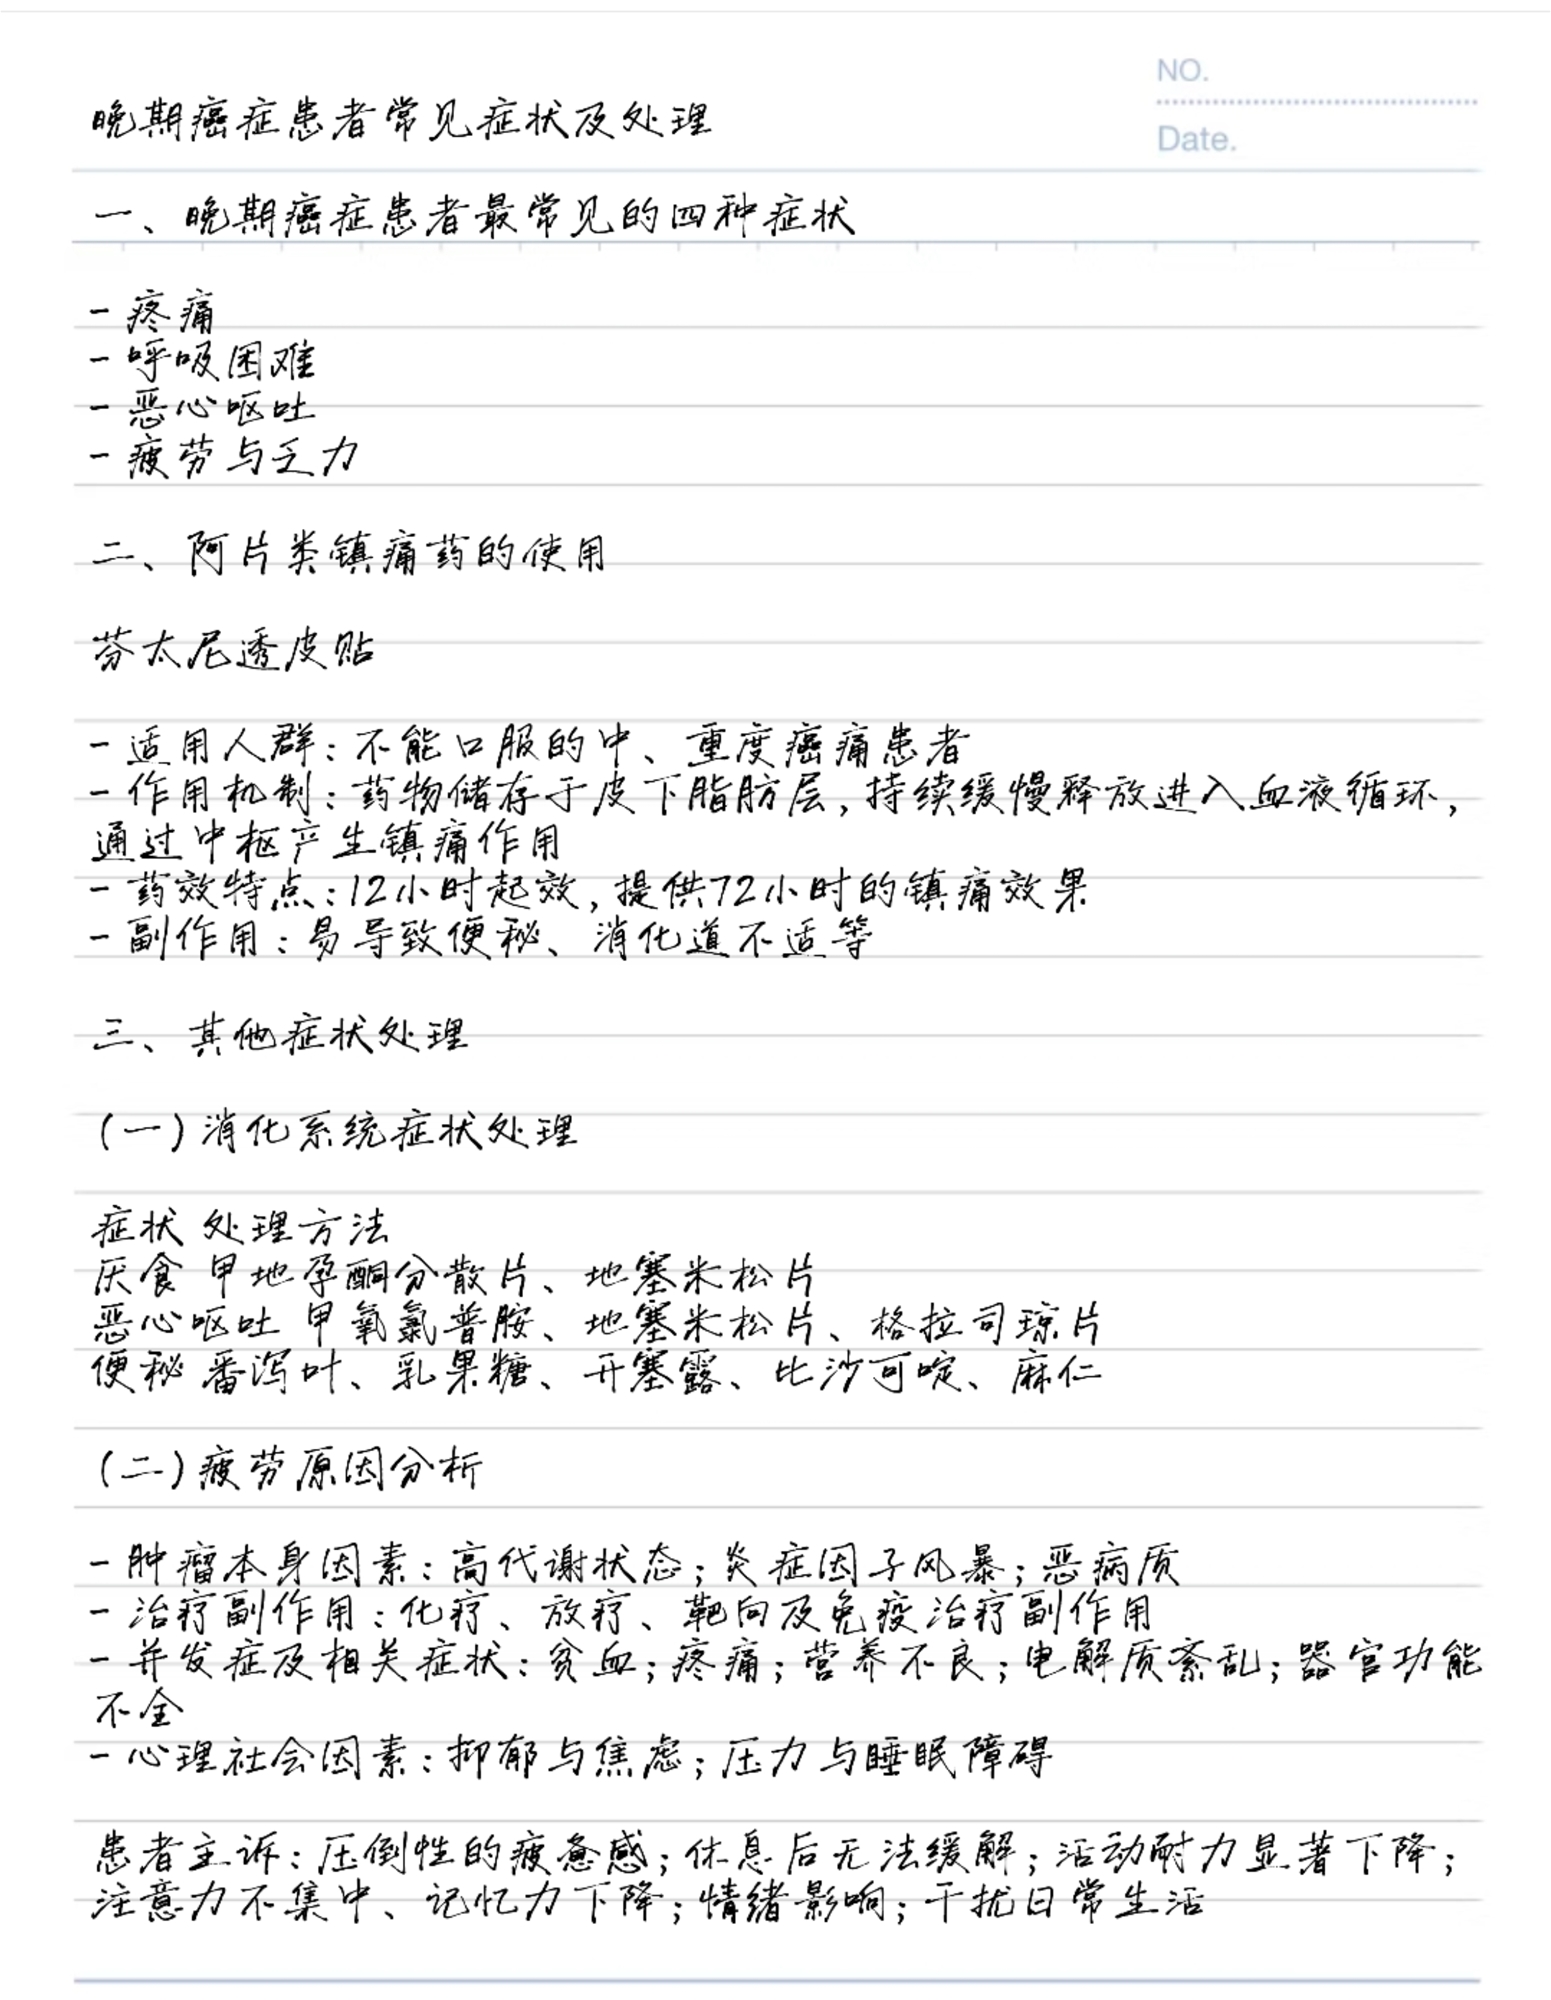 NO.
Date.
晚期癌症患者常见症状及处理
一、晚期癌症患者最常见的四种症状
- 疼痛
- 呼吸困难
- 恶心呕吐
- 疲劳与乏力
二、阿片类镇痛药的使用
芬太尼透皮贴
- 适用人群：不能口服的中、重度癌痛患者
- 作用机制：药物储存于皮下脂肪层，持续缓慢释放进入血液循环，
通过中枢产生镇痛作用
- 药效特点：12小时起效，提供72小时的镇痛效果
- 副作用：易导致便秘、消化道不适等
三、其他症状处理
(一)消化系统症状处理
症状 处理方法
厌食 甲地孕酮分散片、地塞米松片
恶心呕吐 甲氧氯普胺、地塞米松片、格拉司琼片
便秘 番泻叶、乳果糖、开塞露、比沙可啶、麻仁
(二)疲劳原因分析
- 肿瘤本身因素：高代谢状态；炎症因子风暴；恶病质
- 治疗副作用：化疗、放疗、靶向及免疫治疗副作用
- 并发症及相关症状：贫血；疼痛；营养不良；电解质紊乱；器官功能
不全
- 心理社会因素：抑郁与焦虑；压力与睡眠障碍
患者主诉：压倒性的疲惫感；休息后无法缓解；活动耐力显著下降；
注意力不集中、记忆力下降；情绪影响；干扰日常生活